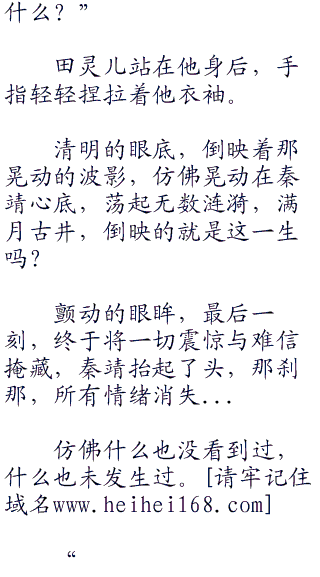 什么？”
田灵儿站在他身后，手
指轻轻捏拉着他衣袖。
清明的眼底，倒映着那
晃动的波影，仿佛晃动在秦
靖心底，荡起无数涟漪，满
月古井，倒映的就是这一生
吗？
颤动的眼眸，最后一
刻，终于将一切震惊与难信
掩藏，秦靖抬起了头，那刹
那，所有情绪消失...
仿佛什么也没看到过，
什么也未发生过。[请牢记住
域名www.heihei168.com]
“